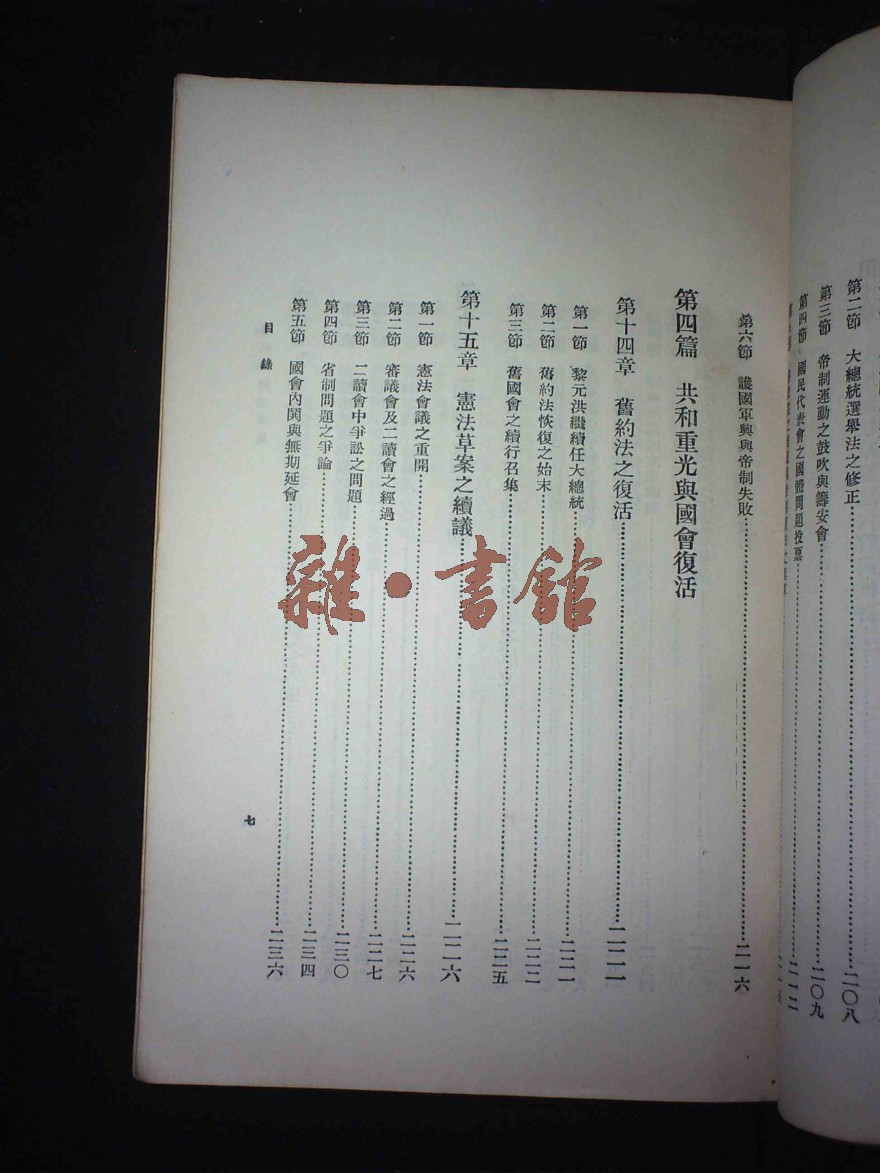 第二節 大總統選舉法之修正……二〇八
第三節 帝制運動之鼓吹與籌安會……二〇九
第四節 國民代表會之國體問題投票……二一二
第六節 護國軍興與帝制失敗……二一六
第四篇 共和重光與國會復活
第十四章 舊約法之復活……二二一
第一節 黎元洪繼續任大總統……二二一
第二節 舊約法恢復之始末……二二二
第三節 舊國會之續行召集……二二五
第十五章 憲法草案之續議……二二六
第一節 憲法會議之重開……二二六
第二節 審議會及二讀會之經過……二二七
第三節 二讀會中爭訟之問題……二三〇
第四節 省制問題之爭論……二三四
第五節 國會內閧與無期延會……二三六
目錄
七
雜·書館